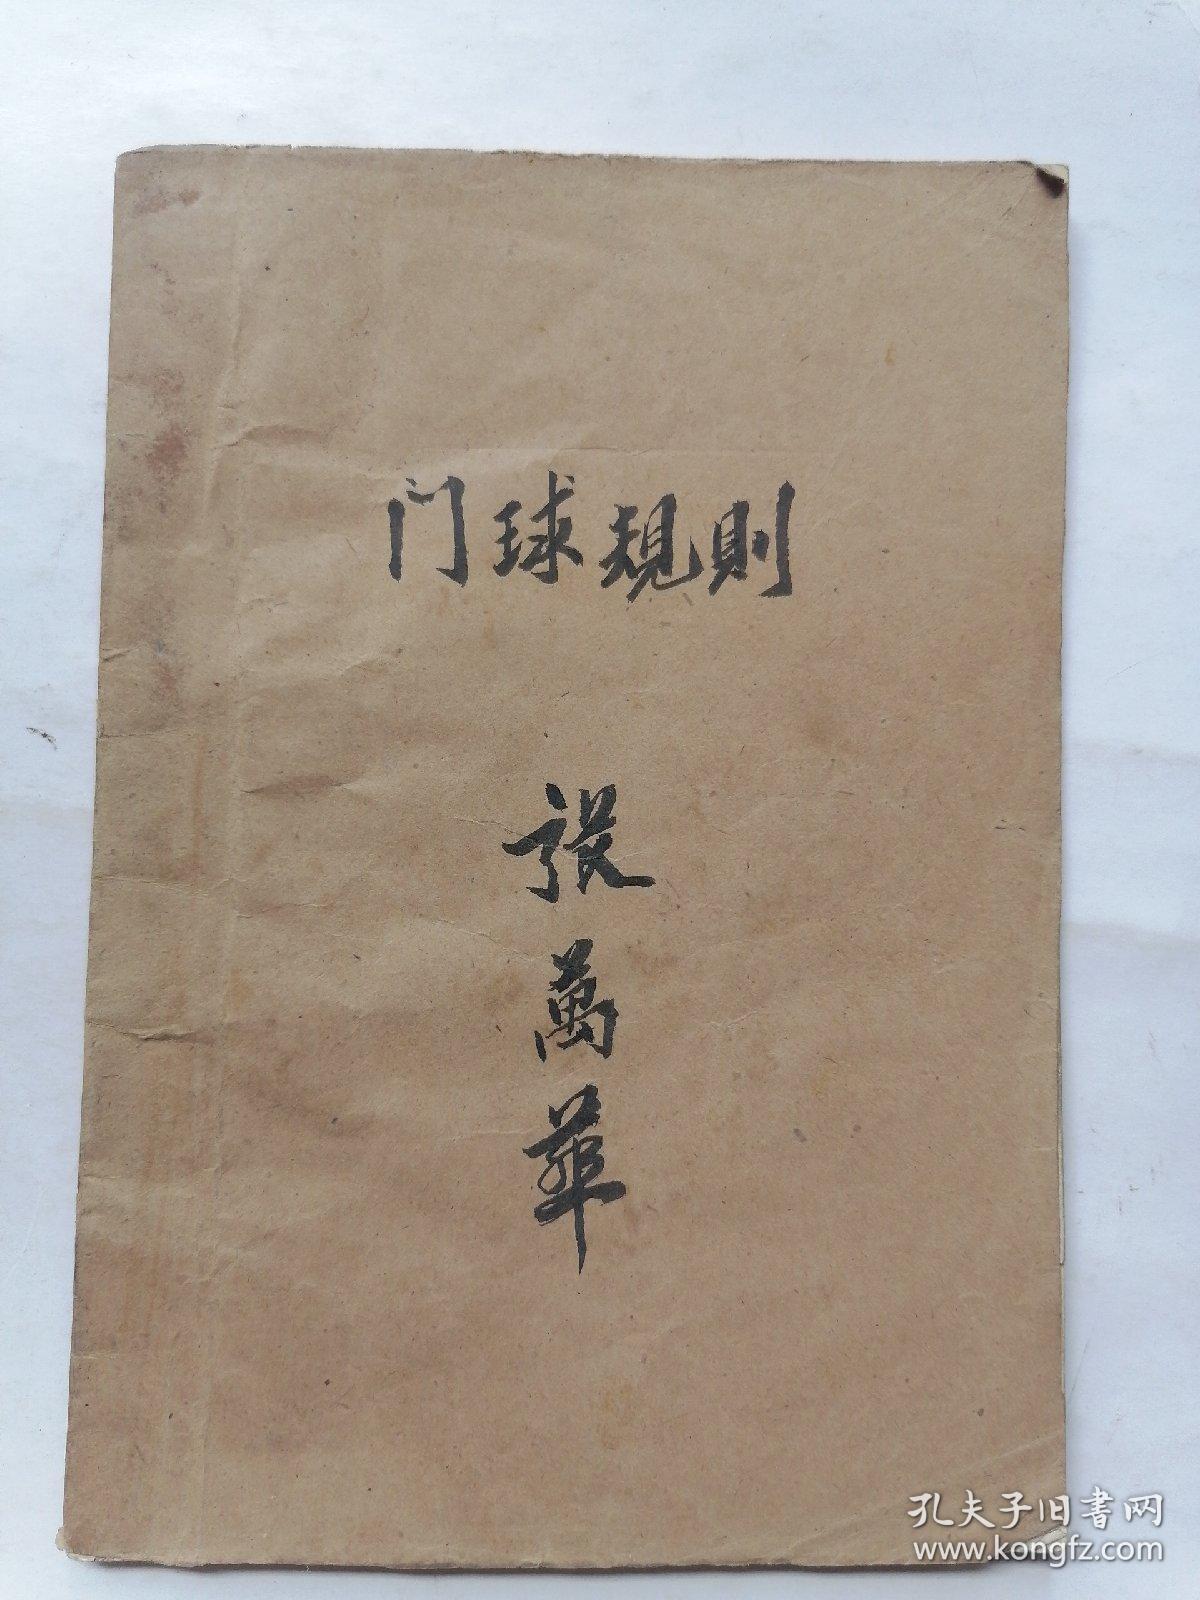 门球规則
設
萬
華
孔夫子旧書网
www.kongfz.com